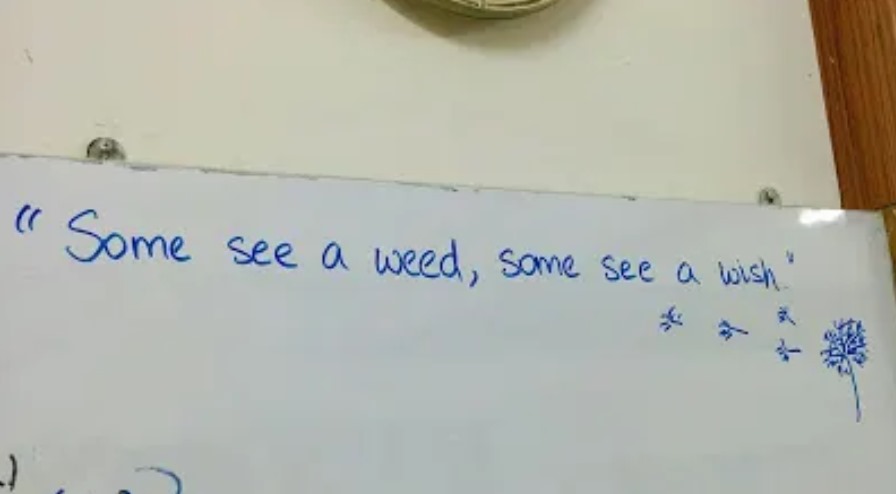 "Some see a weed, some see a wish."